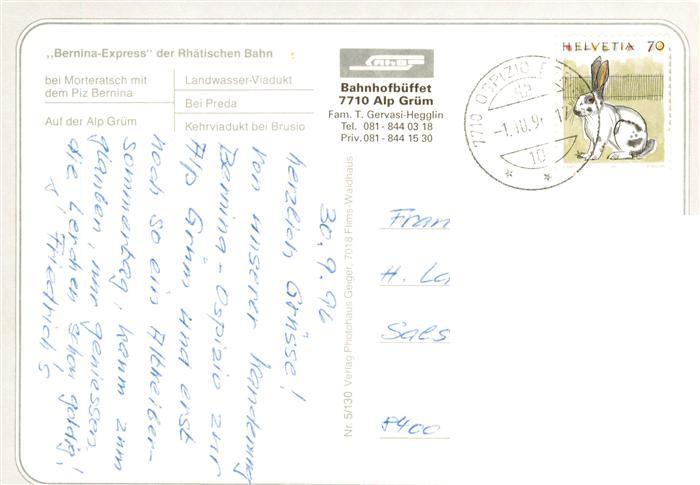 „Bernina-Express" der Rhätischen Bahn
bei Morteratsch mit
dem Piz Bernina
Auf der Alp Grüm
Landwasser-Viadukt
Bei Preda
Kehrviadukt bei Brusio
RhB
Bahnhofbüffet
7710 Alp Grüm
Fam. T. Gervasi-Hegglin
Tel. 081 - 844 03 18
Priv. 081 - 844 15 30
HELVETIA 70
7710 OSPIZIO
-1.10.9
Nr. 5/130 Verlag Photohaus Geiger, 7018 Flims-Waldhaus
30.9.96
herzlich Grüsse!
von unserer Wanderung
Bernina-Ospizio zur
Alp Grüm und erst
noch so ein Altweiber-
sommertag, kaum zum
glauben, nur geniessen.
die Lerchen schon goldig!
Friedrich
Fran
H. La
Sals
8400